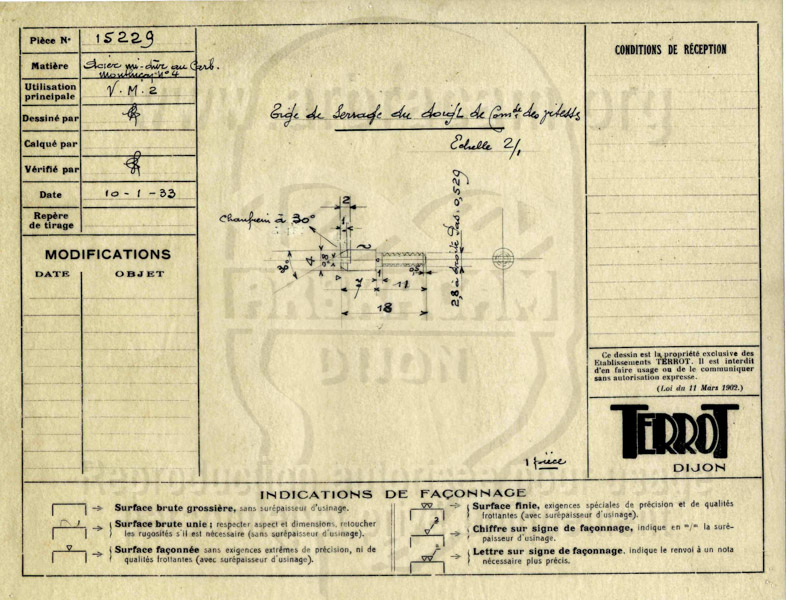 Pièce No 15229
Matière Acier mi-dur au Carb.
Montluçon No 4
Utilisation principale V.M.2
Dessiné par
Calqué par
Vérifié par
Date 10-1-33
Repère de tirage
MODIFICATIONS
DATE OBJET
Tige de Serrage du doigt de Comde des vitesses
Echelle 2/1
Chanfrein à 30°
2
1
30°
4
0,8
7
1
11
0,5
18
2,8 à droite Pas. 0,529
1 pièce
CONDITIONS DE RÉCEPTION
Ce dessin est la propriété exclusive des
Etablissements TERROT. Il est interdit
d'en faire usage ou de le communiquer
sans autorisation expresse.
(Loi du 11 Mars 1902.)
TERROT
DIJON
INDICATIONS DE FAÇONNAGE
Surface brute grossière, sans surépaisseur d'usinage.
Surface brute unie ; respecter aspect et dimensions, retoucher
les rugosités s'il est nécessaire (sans surépaisseur d'usinage).
Surface façonnée sans exigences extrêmes de précision, ni de
qualités frottantes (avec surépaisseur d'usinage).
Surface finie, exigences spéciales de précision et de qualités
frottantes (avec surépaisseur d'usinage).
3
Chiffre sur signe de façonnage, indique en m/m la suré-
paisseur d'usinage.
Lettre sur signe de façonnage, indique le renvoi à un nota
nécessaire plus précis.